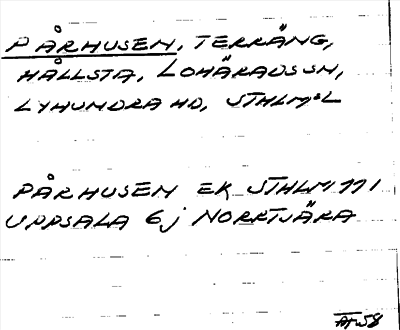 PÅRHUSEN, TERRÄNG,
HÅLLSTA, LOHÄRADS SN,
LYHUNDRA HD, STHLMS L
PÅRHUSEN EK STHLM 111
UPPSALA 6j NORRTJÄRA